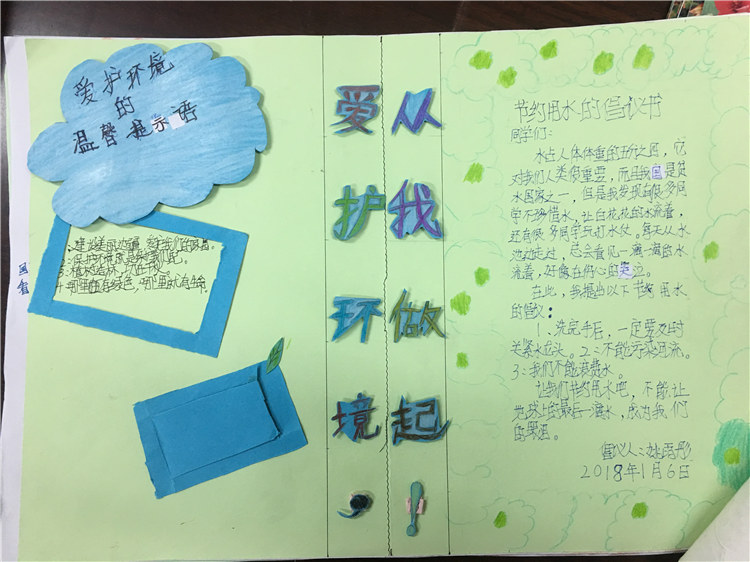 爱护环境
的
温馨提示语
1、建设美丽边疆,
2、保护环境就是
3、植树造林,
4、哪里有绿色,哪里就有生命.
爱护环境,
从我做起!
节约用水的倡议书
同学们:
水占人体体重的三分之四,它
对我们人类很重要,而且我国是贫
水国家之一,但是我发现有很多同
学不珍惜水,让白花花的水流着,
还有很多同学玩打水仗。每天从水
池边走过,总会看见一滴一滴的水
流着,好像在伤心的哭泣。
在此,我提出以下节约用水
的倡议:
1、洗完手后,一定要及时
关紧水龙头。2、不能污染河流。
3、我们不能浪费水。
让我们节约用水吧,不能让
地球上的最后一滴水,成为我们
的眼泪。
倡议人:
2018年1月6日